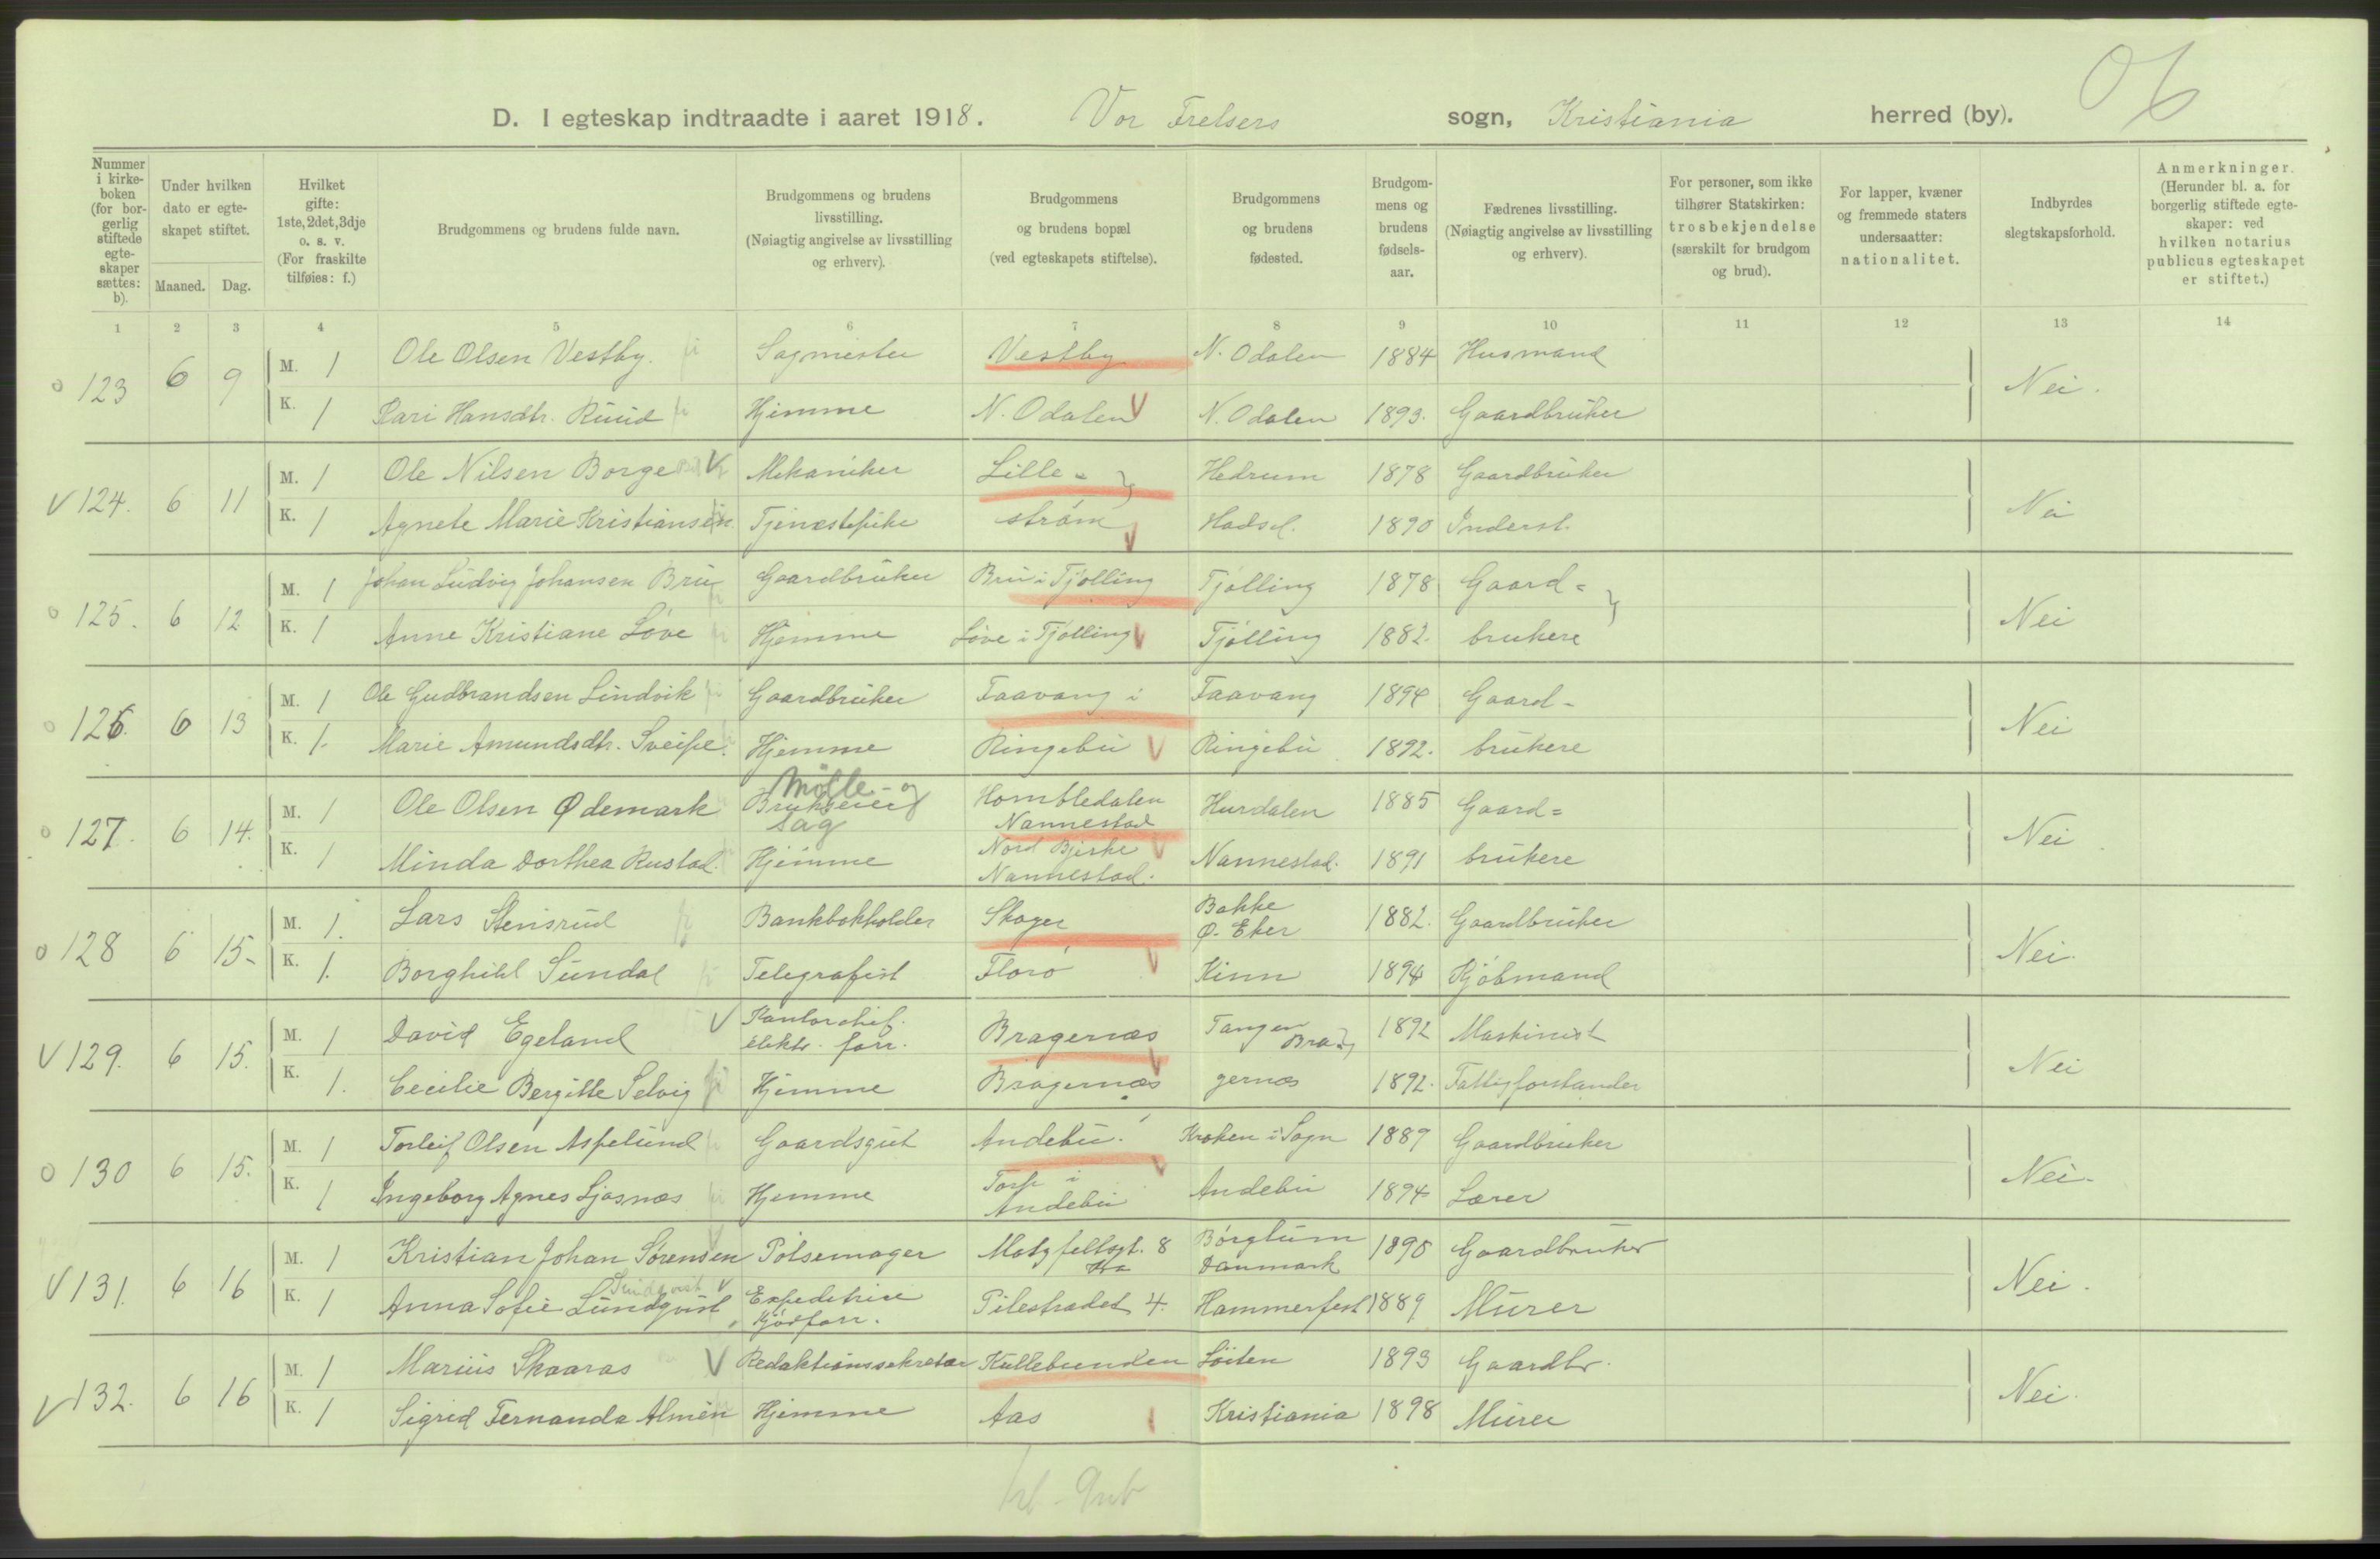 D. I egteskap indtraadte i aaret 1918. Vor Frelsers sogn, Kristiania herred (by).
Nummer i kirke-boken (for bor-gerlig stiftede egte-skaper sættes: b).
Under hvilken dato er egte-skapet stiftet.
Maaned. Dag.
Hvilket gifte: 1ste, 2det, 3dje o. s. v. (For fraskilte tilføies: f.)
Brudgommens og brudens fulde navn.
Brudgommens og brudens livsstilling. (Nøiagtig angivelse av livsstilling og erhverv).
Brudgommens og brudens bopæl (ved egteskapets stiftelse).
Brudgommens og brudens fødested.
Brudgom-mens og brudens fødsels-aar.
Fædrenes livsstilling. (Nøiagtig angivelse av livsstilling og erhverv).
For personer, som ikke tilhører Statskirken: trosbekjendelse (særskilt for brudgom og brud).
For lapper, kvæner og fremmede staters undersaatter: nationalitet.
Indbyrdes slegtskapsforhold.
Anmerkninger. (Herunder bl. a. for borgerlig stiftede egte-skaper: ved hvilken notarius publicus egteskapet er stiftet.)
1 2 3 4 5 6 7 8 9 10 11 12 13 14
o 123 6 9 M. 1 Ole Olsen Vestby. Sagmester Vestby N. Odalen 1884 Husmand Nei.
K. 1 Kari Hansdtr. Ruud Hjemme N. Odalen N. Odalen 1893. Gaardbruker
V 124. 6 11 M. 1 Ole Nilsen Borge V Mekaniker Lille- Hedrum 1878 Gaardbruker Nei
K. 1 Agnete Marie Kristiansen Tjenestepike strøm Hadsel. 1890 Inderst.
o 125. 6 12 M. 1 Johan Ludvig Johansen Bru Gaardbruker Bru i Tjølling Tjølling 1878 Gaard= Nei
K. 1 Anne Kristiane Løve Hjemme Løve i Tjølling Tjølling 1882. brukere
o 126. 6 13 M. 1 Ole Gudbrandsen Lindvik Gaardbruker Faavang i Faavang 1894 Gaard- Nei
K. 1. Marie Amundsdtr. Sveipe. Hjemme Ringebu Ringebu 1892. brukere
o 127. 6 14. M. 1 Ole Olsen Ødemark Brukseier Mølle- og sag Hombledalen Nannestad Hurdalen 1885 Gaard= Nei
K. 1 Minda Dorthea Rustad. Hjemme Nord Bjerke Nannestad. Nannestad. 1891 brukere
o 128 6 15- M. 1. Lars Stensrud Bankbokholder Skoger Bakke Ø. Eker 1882. Gaardbruker Nei.
K. 1. Borghild Sundal Telegrafist Florø Kinn 1894 Kjøbmand
V 129. 6 15. M. 1 David Egeland V Kontorchef. elektr. forr. Bragernæs Tangen Bra- 1892 Maskinist Nei
K. 1. Cecilie Bergitte Selvig Hjemme Bragernæs gernæs 1892. Fattigforstander
o 130 6 15. M. 1 Torleif Olsen Aspelund Gaardsgut Andebu. Kroken i Sogn 1889 Gaardbruker Nei-
K. 1 Ingeborg Agnes Ljøsnæs Hjemme Torp i Andebu Andebu 1894 Lærer
V 131. 6 16 M. 1 Kristian Johan Sørensen Pølsemager Motzfeltsgt. 8 Kra Børglum Danmark 1890 Gaardbruker Nei.
K. 1 Anna Sofie Lundqvist Lindqvist V Expeditrice Kjødforr. Pilestrædet 4. Hammerfest 1889 Murer
V 132. 6 16 M. 1 Marius Skaaras V Redaktionssekretær Kullebunden Løiten 1893 Gaardbr. Nei.
K. 1 Sigrid Fernanda Almén Hjemme Aas Kristiania 1898 Murer